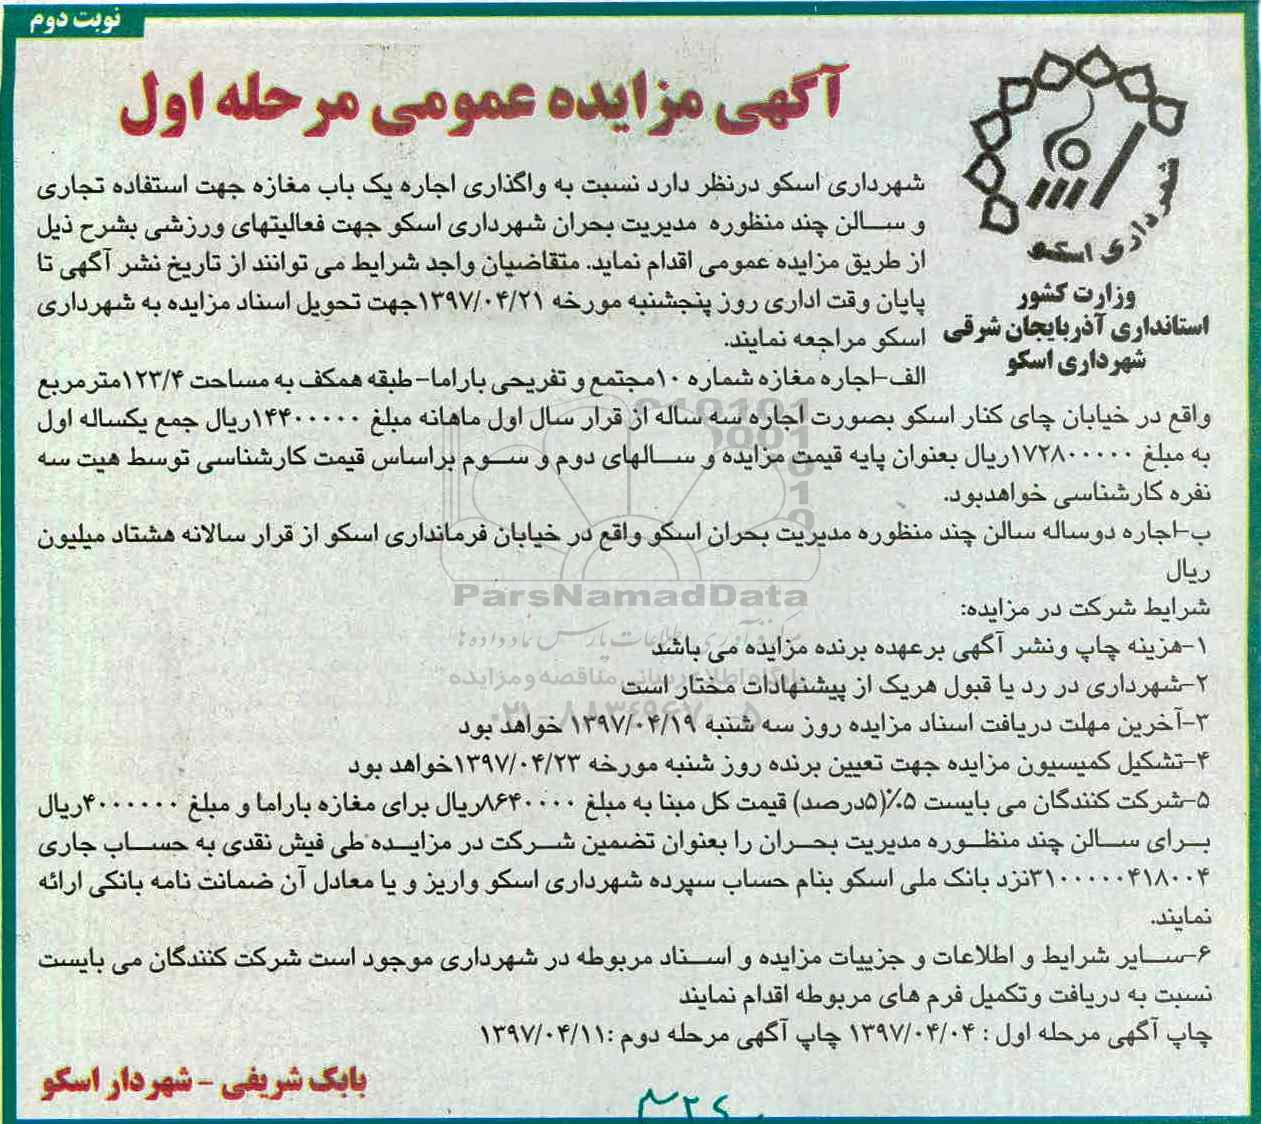 نوبت دوم
آگهی مزایده عمومی مرحله اول
شهرداری اسکو
وزارت کشور
استانداری آذربایجان شرقی
شهرداری اسکو
شهرداری اسکو درنظر دارد نسبت به واگذاری اجاره یک باب مغازه جهت استفاده تجاری
و سالن چند منظوره مدیریت بحران شهرداری اسکو جهت فعالیتهای ورزشی بشرح ذیل
از طریق مزایده عمومی اقدام نماید. متقاضیان واجد شرایط می توانند از تاریخ نشر آگهی تا
پایان وقت اداری روز پنجشنبه مورخه ۱۳۹۷/۰۴/۲۱جهت تحویل اسناد مزایده به شهرداری
اسکو مراجعه نمایند.
الف-اجاره مغازه شماره ۱۰مجتمع و تفریحی باراما-طبقه همکف به مساحت ۱۲۳/۴مترمربع
واقع در خیابان چای کنار اسکو بصورت اجاره سه ساله از قرار سال اول ماهانه مبلغ ۱۴۴۰۰۰۰۰ریال جمع یکساله اول
به مبلغ ۱۷۲۸۰۰۰۰۰ریال بعنوان پایه قیمت مزایده و سالهای دوم و سوم براساس قیمت کارشناسی توسط هیت سه
نفره کارشناسی خواهدبود.
ب-اجاره دوساله سالن چند منظوره مدیریت بحران اسکو واقع در خیابان فرمانداری اسکو از قرار سالانه هشتاد میلیون
ریال
شرایط شرکت در مزایده:
۱-هزینه چاپ ونشر آگهی برعهده برنده مزایده می باشد
۲-شهرداری در رد یا قبول هریک از پیشنهادات مختار است
۳-آخرین مهلت دریافت اسناد مزایده روز سه شنبه ۱۳۹۷/۰۴/۱۹ خواهد بود
۴-تشکیل کمیسیون مزایده جهت تعیین برنده روز شنبه مورخه ۱۳۹۷/۰۴/۲۳خواهد بود
۵-شرکت کنندگان می بایست ۵٪(۵درصد) قیمت کل مبنا به مبلغ ۸۶۴۰۰۰۰ریال برای مغازه باراما و مبلغ ۴۰۰۰۰۰۰ریال
برای سالن چند منظوره مدیریت بحران را بعنوان تضمین شرکت در مزایده طی فیش نقدی به حساب جاری
۳۱۰۰۰۰۰۴۱۸۰۰۴نزد بانک ملی اسکو بنام حساب سپرده شهرداری اسکو واریز و یا معادل آن ضمانت نامه بانکی ارائه
نمایند.
۶-سایر شرایط و اطلاعات و جزییات مزایده و اسناد مربوطه در شهرداری موجود است شرکت کنندگان می بایست
نسبت به دریافت وتکمیل فرم های مربوطه اقدام نمایند
چاپ آگهی مرحله اول : ۱۳۹۷/۰۴/۰۴ چاپ آگهی مرحله دوم :۱۳۹۷/۰۴/۱۱
بابک شریفی - شهردار اسکو
ParsNamadData
مرکز فرآوری اطلاعات پارس نماد داده ها
پایگاه اطلاع رسانی مناقصه و مزایده
۰۲۱-۸۸۳۴۹۶۷۰-۵